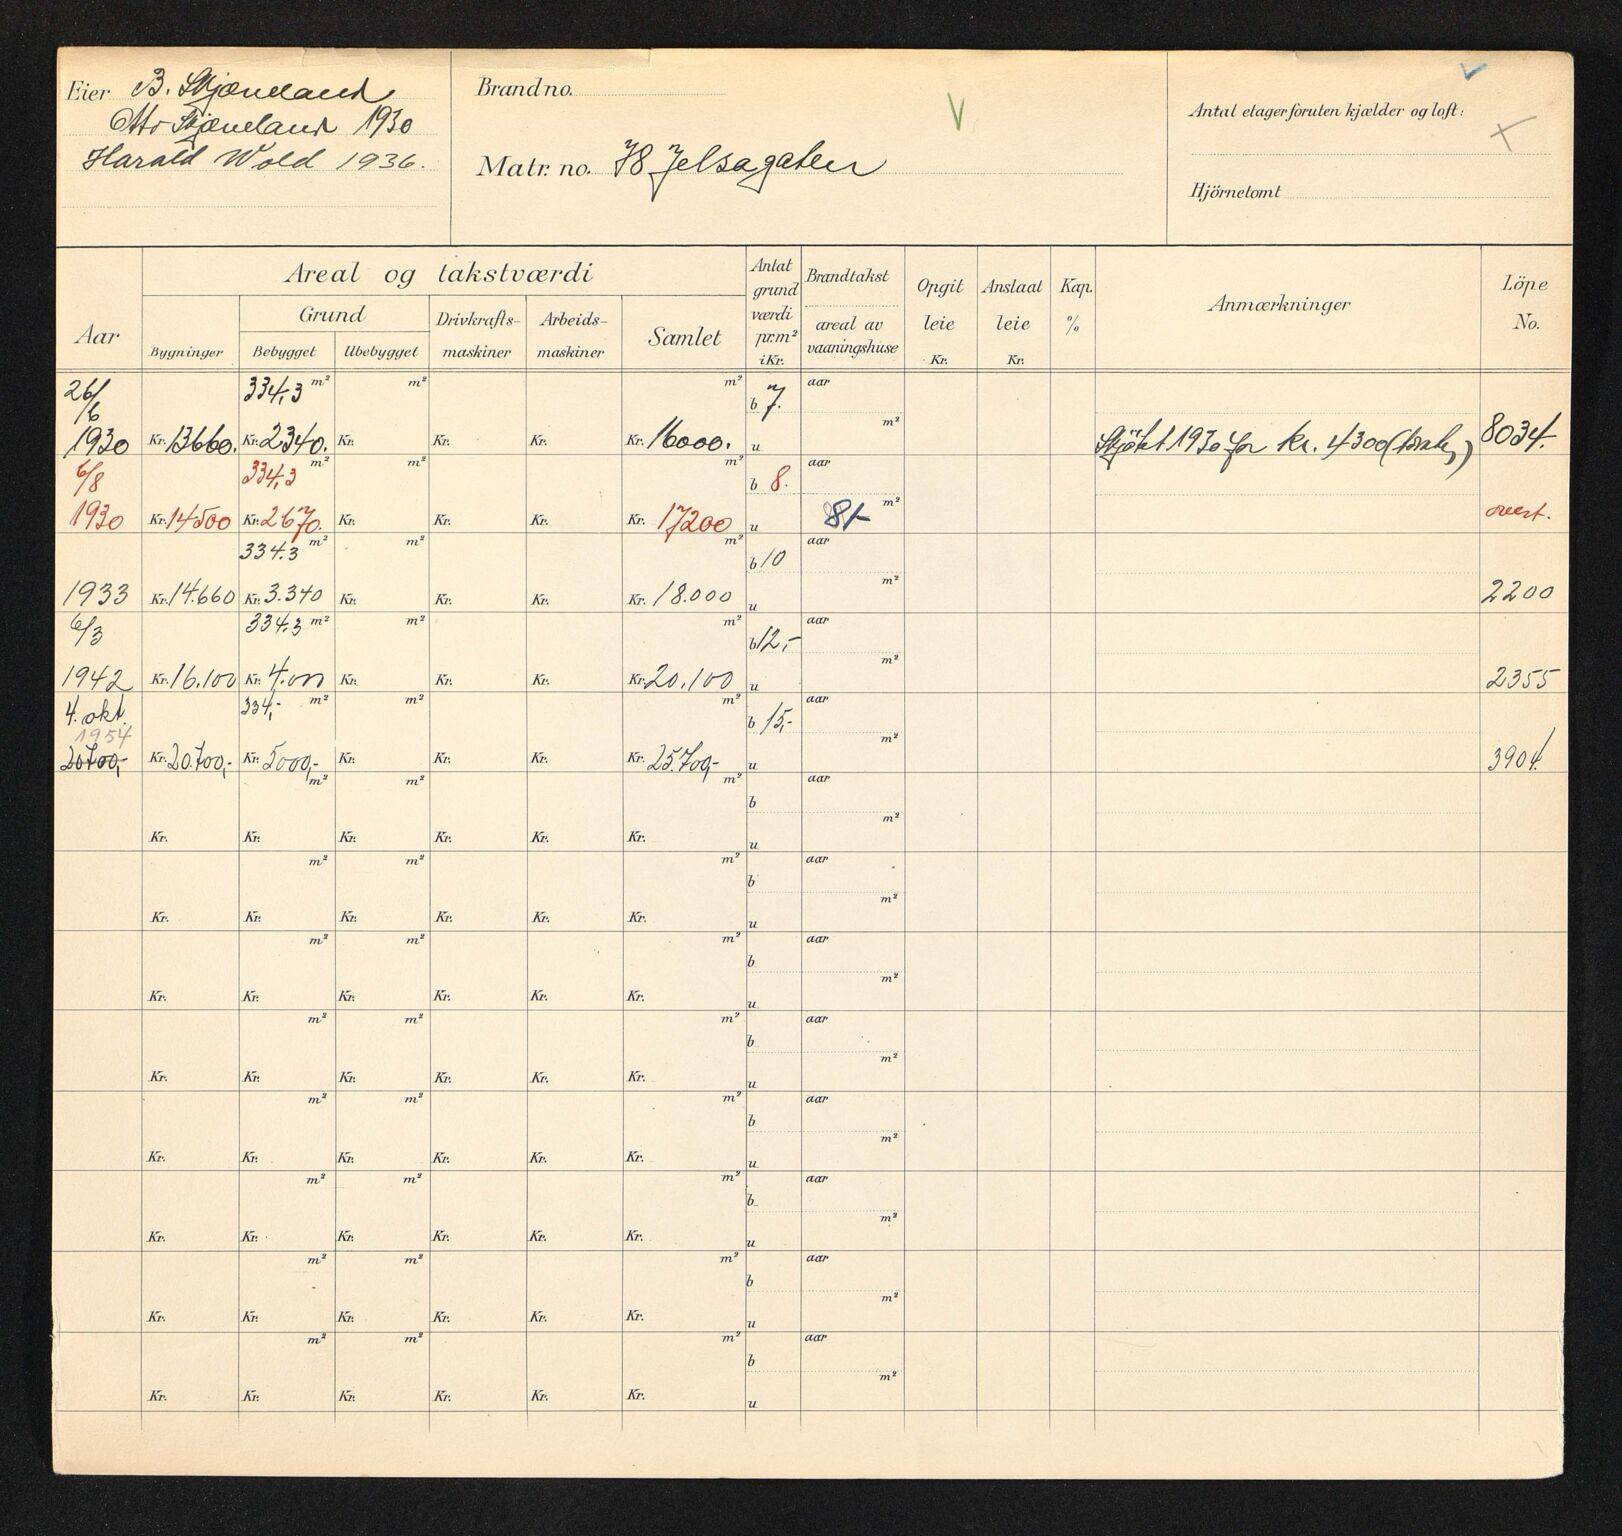 Eier B. Skjæveland
Otto Skjæveland 1930
Harald Wold 1936.
Brand no.
Matr. no. 78 Jelsagaten
V
Antal etager foruten kjælder og loft:
Hjörnetomt
Aar
Areal og takstværdi
Bygninger
Grund
Bebygget
Ubebygget
Drivkrafts-
maskiner
Arbeids-
maskiner
Samlet
Antat
grund
værdi
pr. m²
i Kr.
Brandtakst
areal av
vaaningshuse
Opgit
leie
Kr.
Anslaat
leie
Kr.
Kap.
%
Anmærkninger
Löpe
No.
26/6 334,3 m² m² m² b 7. aar
m²
1930 Kr. 13660. Kr. 2340. Kr. Kr. Kr. Kr. 16000. u Skjötet 1930 for kr. 4300 8034.
6/8 334,3 m² m² m² b 8. aar
m²
1930 Kr. 14500 Kr. 2670. Kr. Kr. Kr. Kr. 17200 u 81 overt.
334.3 m² m² m² b 10 aar
m²
1933 Kr. 14.660 Kr. 3.340 Kr. Kr. Kr. Kr. 18.000 u 2200
6/3 334.3 m² m² m² b 12,- aar
m²
1942 Kr. 16.100 Kr. 4.000 Kr. Kr. Kr. Kr. 20.100 u 2355
4. okt. 334,- m² m² m² b 15,- aar
1954 m²
20700,- Kr. 20.700,- Kr. 5000,- Kr. Kr. Kr. Kr. 25.700,- u 3904
m² m² m² b aar
m²
Kr. Kr. Kr. Kr. Kr. Kr. u
m² m² m² b aar
m²
Kr. Kr. Kr. Kr. Kr. Kr. u
m² m² m² b aar
m²
Kr. Kr. Kr. Kr. Kr. Kr. u
m² m² m² b aar
m²
Kr. Kr. Kr. Kr. Kr. Kr. u
m² m² m² b aar
m²
Kr. Kr. Kr. Kr. Kr. Kr. u
m² m² m² b aar
m²
Kr. Kr. Kr. Kr. Kr. Kr. u
m² m² m² b aar
m²
Kr. Kr. Kr. Kr. Kr. Kr. u
m² m² m² b aar
m²
Kr. Kr. Kr. Kr. Kr. Kr. u